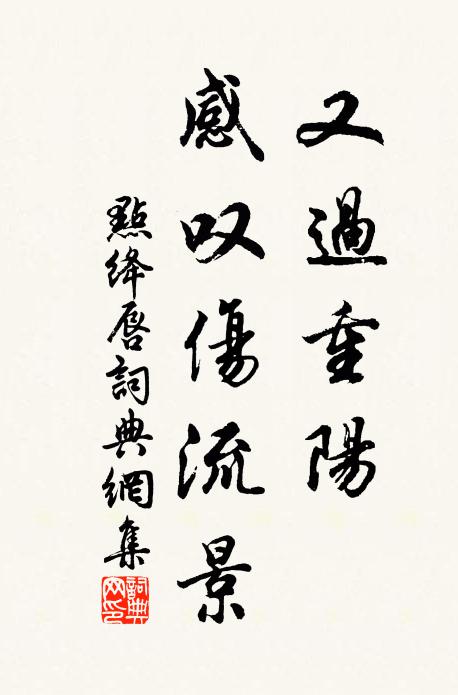 又過重陽
感叹傷流景
點絳唇詞典網集
詞典
网印